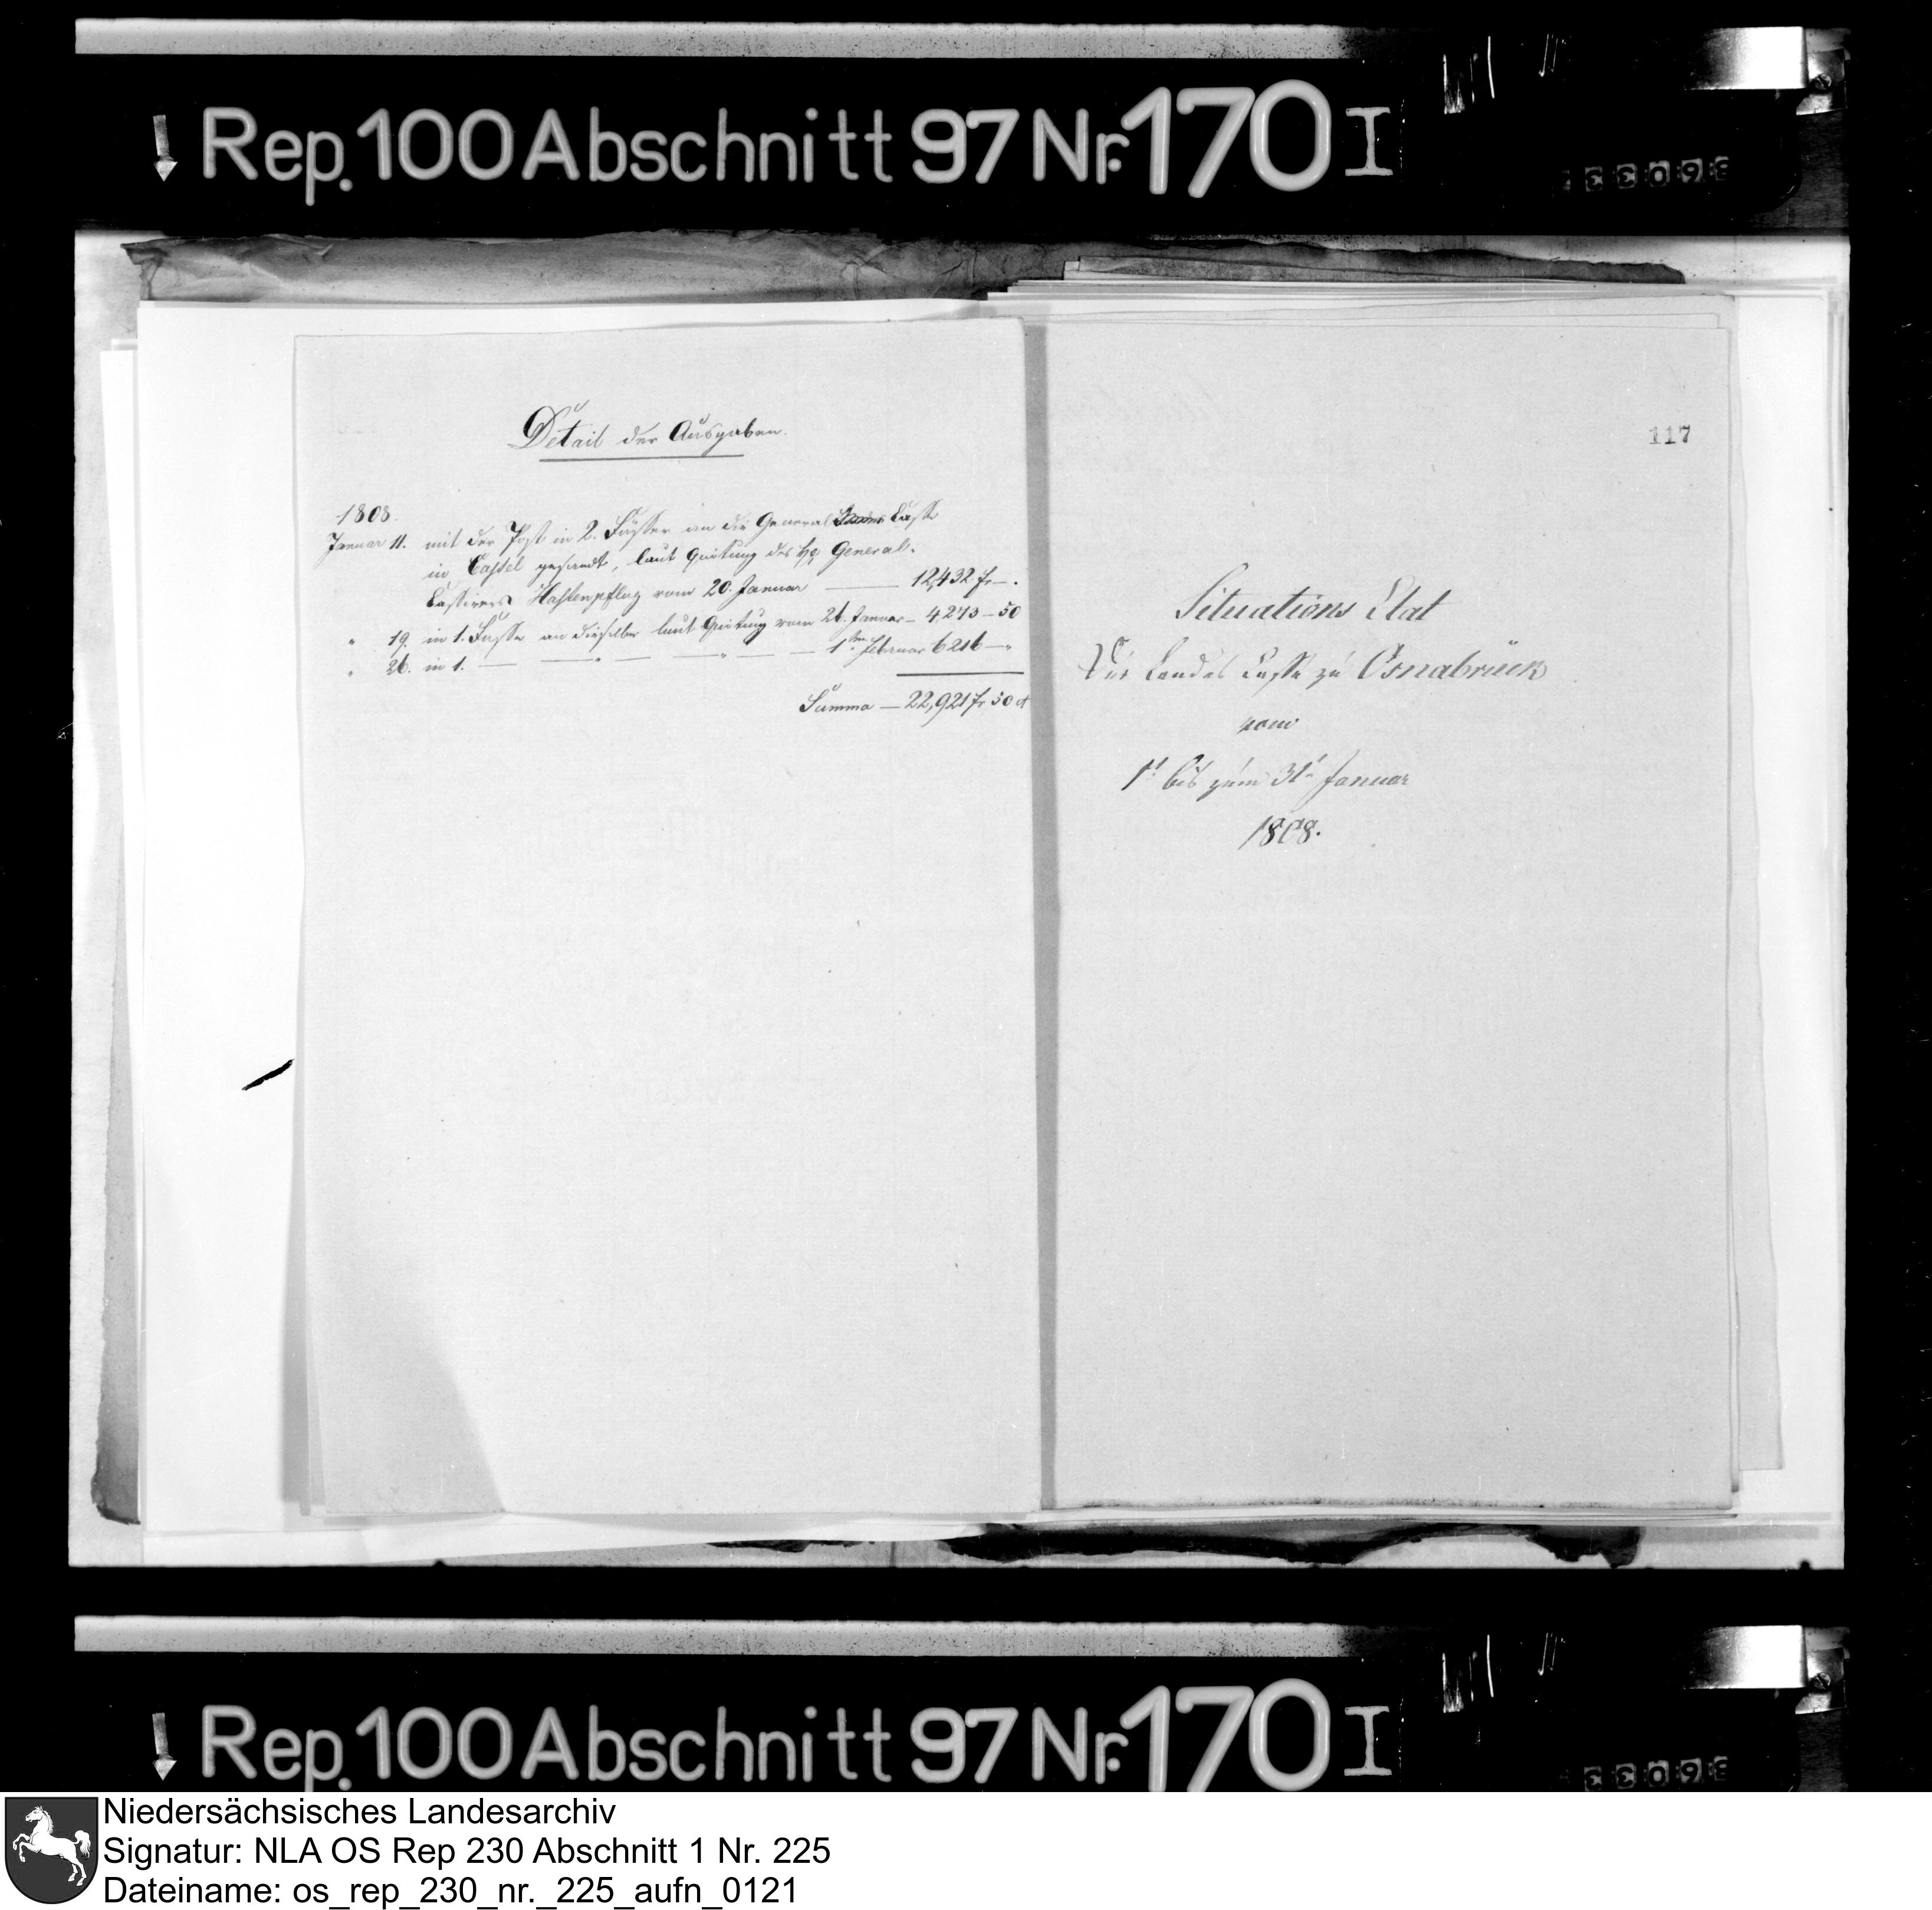 Rep. 100 Abschnitt 97 Nr. 170 I
Detail der Ausgaben.
1808.
Januar 11. mit der Post in 2. Fässer an die General Casse
in Cassel gesandt, laut Quitung des General-
Cassirers vom 20. Januar — 12,432 fr —.
" 19. in 1. Fasse an dieselbe laut Quitung vom 26. Januar — 4273 — 50
" 26. in 1. — — " — — " — — 1ten Februar 6216 — "
Summa — 22,921 fr 50 ct
117
Situations Etat
Der Landes Casse zu Osnabrück
vom
1t bis zum 31t Januar
1808.
Rep. 100 Abschnitt 97 Nr. 170 I
Niedersächsisches Landesarchiv
Signatur: NLA OS Rep 230 Abschnitt 1 Nr. 225
Dateiname: os_rep_230_nr._225_aufn_0121